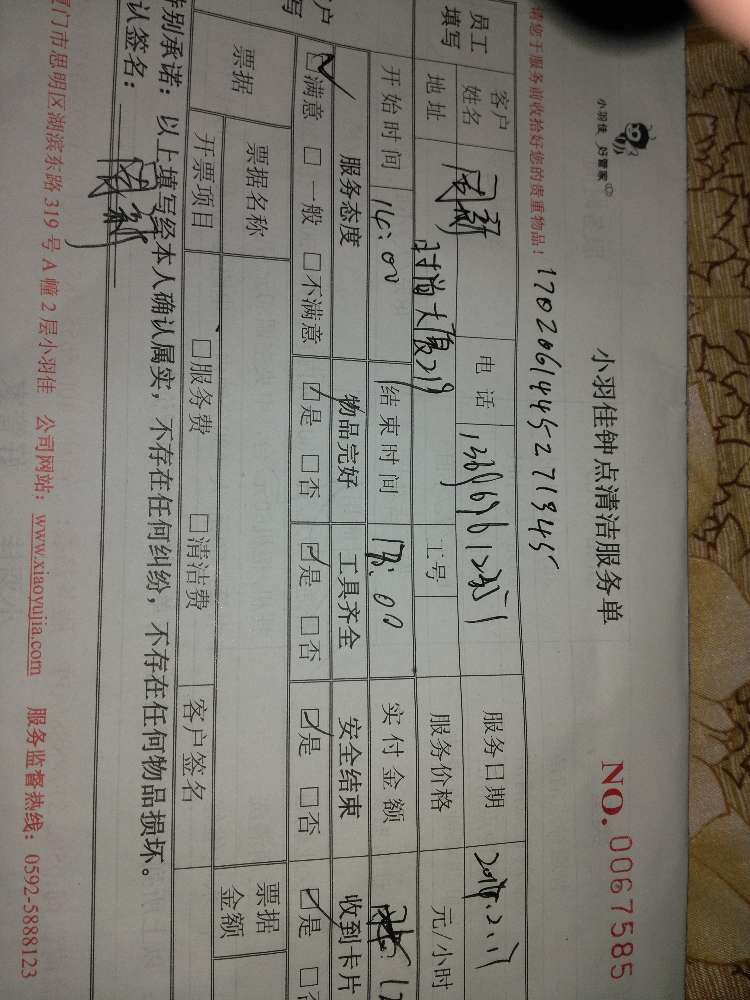 小羽佳 好管家
小羽佳钟点清洁服务单
NO. 0067585
请您于服务前收拾好您的贵重物品！
17020614452711345
员工填写
客户姓名
电话
服务日期
地址
时尚大厦219
工号
服务价格
元/小时
开始时间
14:00
结束时间
18:00
实付金额
服务态度 物品完好 工具齐全 安全结束 收到卡片
满意 一般 不满意 是 否 是 否 是 否 是
票据
票据名称
票据金额
开票项目
服务费 清洁费
客户签名
特别承诺：以上填写经本人确认属实，不存在任何纠纷，不存在任何物品损坏。
认签名：
厦门市思明区湖滨东路 319 号 A 幢 2 层小羽佳 公司网站：www.xiaoyujia.com 服务监督热线：0592-5888123